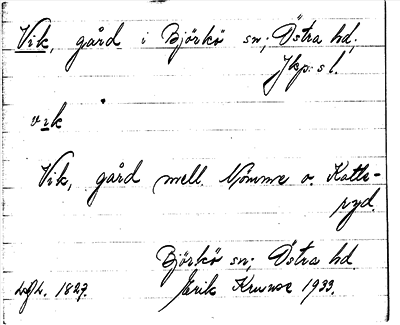 Vik, gård i Björkö sn; Östra hd,
Jkp:s l.
vik
Vik, gård mell. Nömme o. Katte-
ryd.
Björkö sn; Östra hd
1827. Erik 1933.